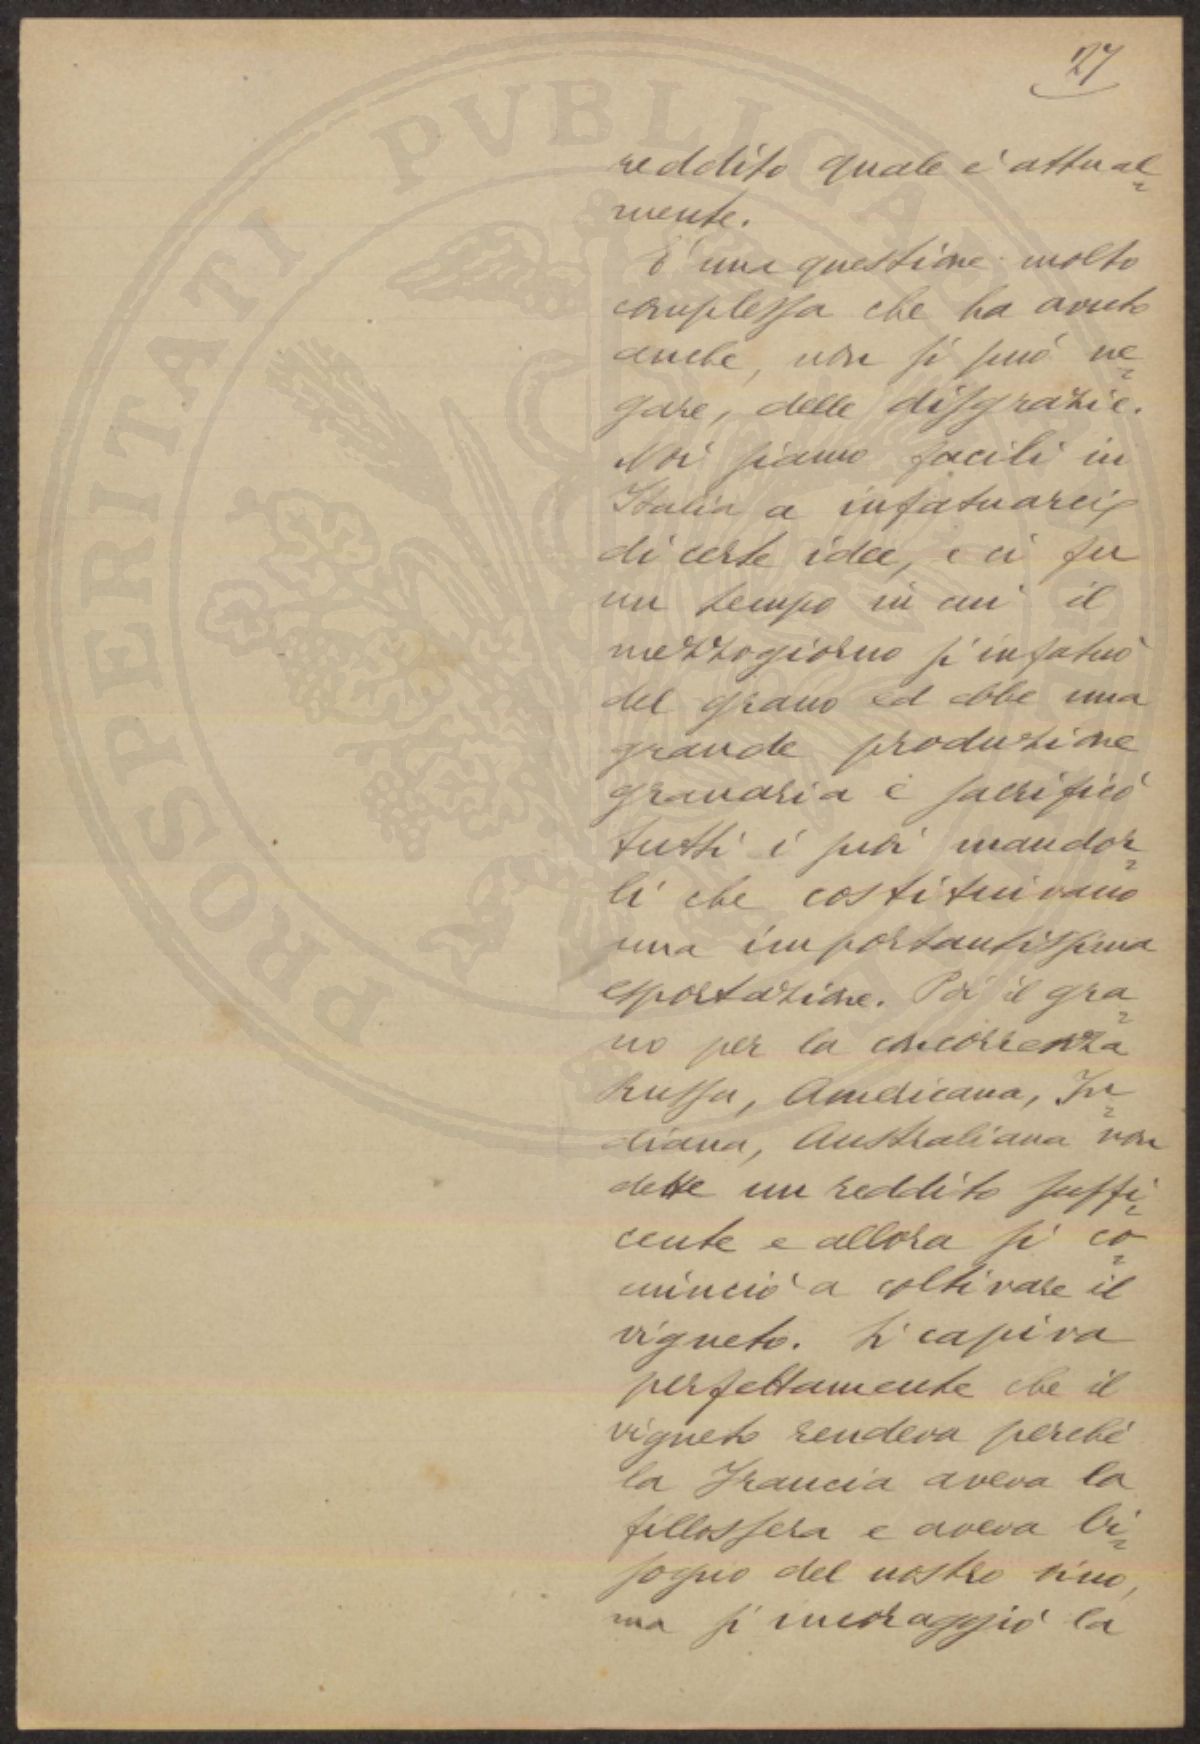 27
reddito quale è attual=
mente.
È una questione molto
complessa che ha avuto
anche, non si può ne=
gare, delle disgrazie.
Noi siamo facili in
Italia a infatuarci
di certe idee, e ci fu
un tempo in cui il
mezzogiorno si infatuò
del grano ed ebbe una
grande produzione
granaria e sacrificò
tutti i suoi mandor=
li che costituivano
una importantissima
esportazione. Poi il gra=
no per la concorrenza
Russa, Americana, In=
diana, Australiana non
dette un reddito suffi=
cente e allora si co=
minciò a coltivare il
vigneto. Si capiva
perfettamente che il
vigneto rendeva perché
la Francia aveva la
fillossera e aveva bi=
sogno del nostro vino,
ma si incoraggiò la
PROSPERITATI PVBLICAE